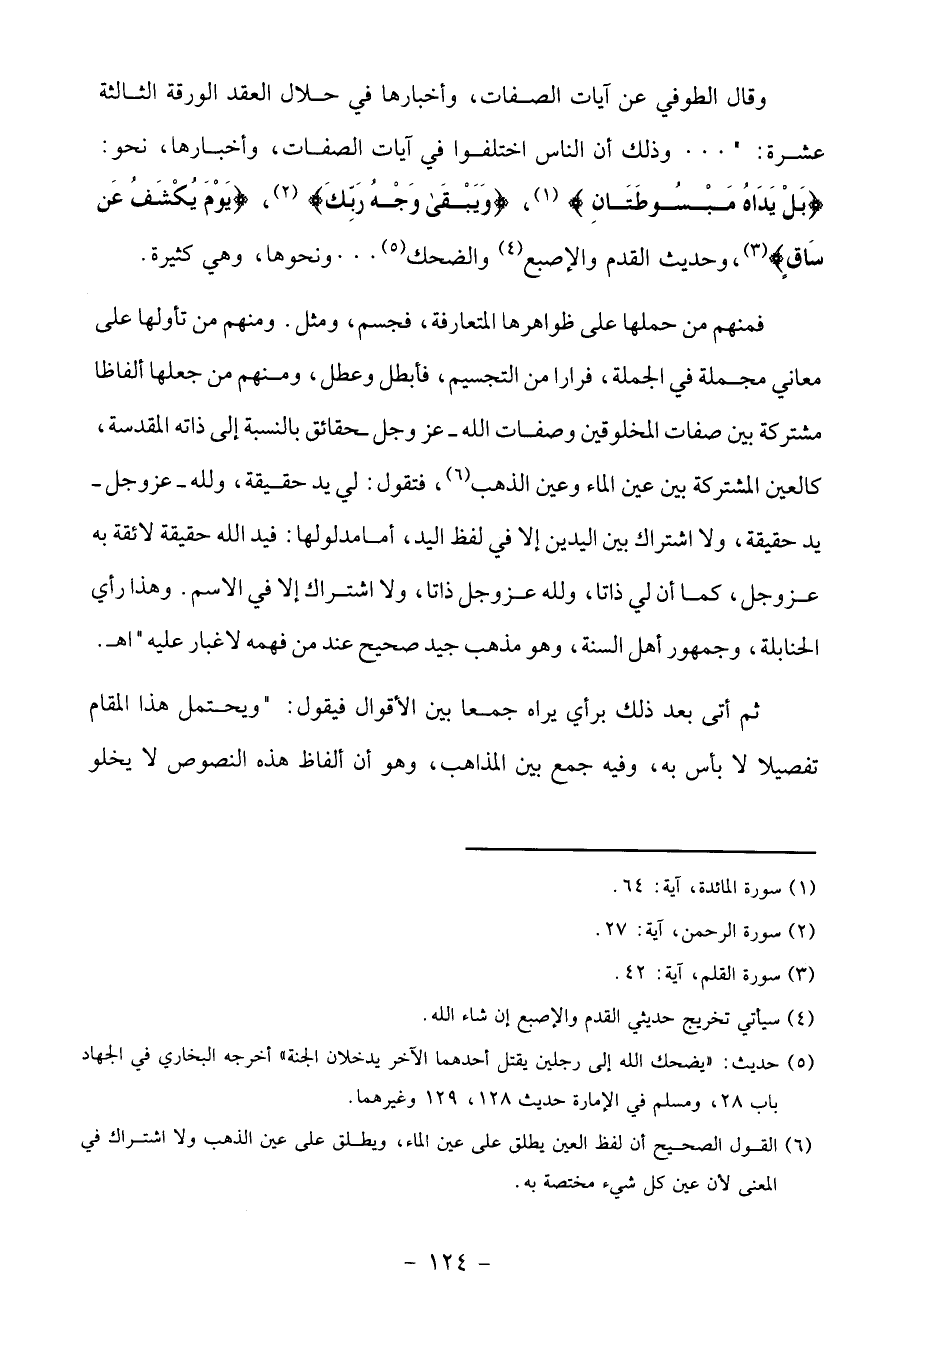 وقال الطوفي عن آيات الصفات، وأخبارها في حلال العقد الورقة الثالثة
عشرة: "... وذلك أن الناس اختلفوا في آيات الصفات، وأخبارها، نحو:
﴿بَلْ يَدَاهُ مَبْسُوطَتَانِ﴾ (١)، ﴿وَيَبْقَىٰ وَجْهُ رَبِّكَ﴾ (٢)، ﴿يَوْمَ يُكْشَفُ عَن
سَاقٍ﴾(٣)، وحديث القدم والإصبع(٤) والضحك(٥)... ونحوها، وهي كثيرة.
فمنهم من حملها على ظواهرها المتعارفة، فجسم، ومثل. ومنهم من تأولها على
معاني مجملة في الجملة، فرارا من التجسيم، فأبطل وعطل، ومنهم من جعلها ألفاظا
مشتركة بين صفات المخلوقين وصفات الله ـ عز وجل ـ حقائق بالنسبة إلى ذاته المقدسة،
كالعين المشتركة بين عين الماء وعين الذهب(٦)، فتقول: لي يد حقيقة، ولله ـ عز وجل ـ
يد حقيقة، ولا اشتراك بين اليدين إلا في لفظ اليد، أما مدلولها: فيد الله حقيقة لائقة به
عز وجل، كما أن لي ذاتا، ولله عز وجل ذاتا، ولا اشتراك إلا في الاسم. وهذا رأي
الحنابلة، وجمهور أهل السنة، وهو مذهب جيد صحيح عند من فهمه لا غبار عليه" اهـ.
ثم أتى بعد ذلك برأي يراه جمعا بين الأقوال فيقول: "ويحتمل هذا المقام
تفصيلا لا بأس به، وفيه جمع بين المذاهب، وهو أن ألفاظ هذه النصوص لا يخلو
(١) سورة المائدة، آية: ٦٤.
(٢) سورة الرحمن، آية: ٢٧.
(٣) سورة القلم، آية: ٤٢.
(٤) سيأتي تخريج حديثي القدم والإصبع إن شاء الله.
(٥) حديث: «يضحك الله إلى رجلين يقتل أحدهما الآخر يدخلان الجنة» أخرجه البخاري في الجهاد
باب ٢٨، ومسلم في الإمارة حديث ١٢٨، ١٢٩ وغيرهما.
(٦) القول الصحيح أن لفظ العين يطلق على عين الماء، ويطلق على عين الذهب ولا اشتراك في
المعنى لأن عين كل شيء مختصة به.
- ١٢٤ -